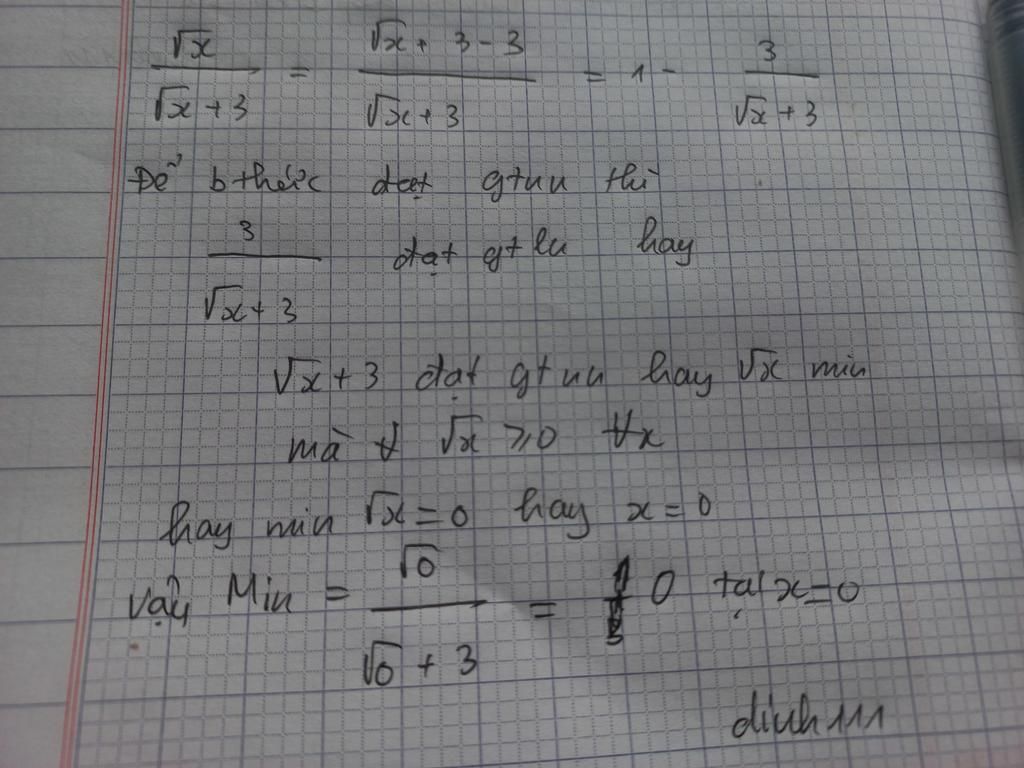 √x / √x + 3 = √x + 3 - 3 / √x + 3 = 1 - 3 / √x + 3
Để bthức đạt gtnn thì
3 / √x + 3 đạt gtln hay
√x + 3 đạt gtnn hay √x min
mà ∀ √x ⩾ 0 ∀x
hay min √x = 0 hay x = 0
Vậy Min = √0 / √0 + 3 = 0 tại x = 0
dinh111